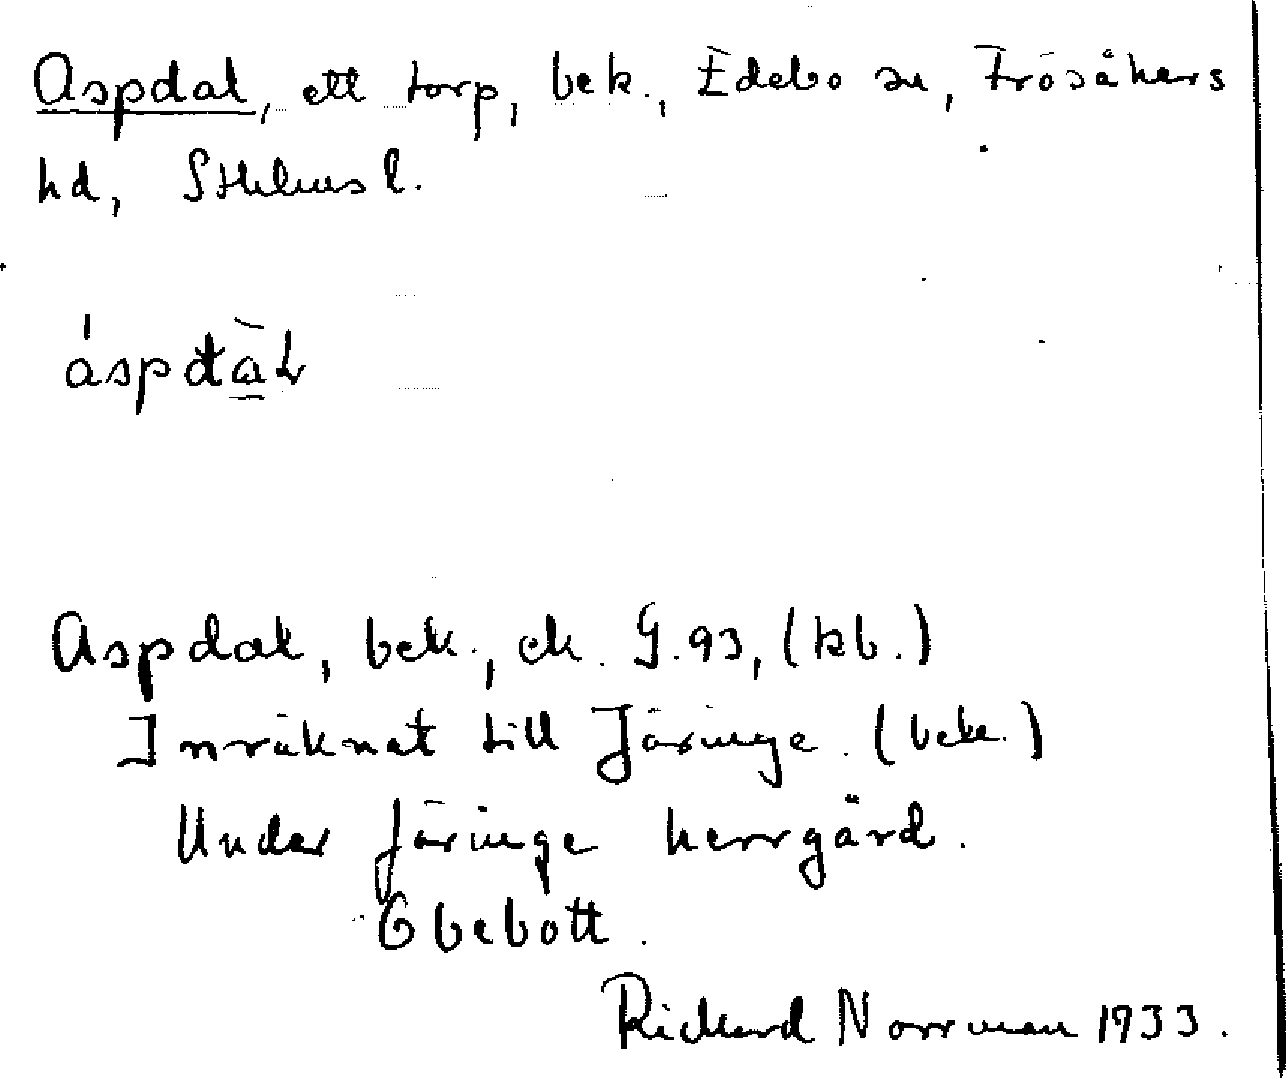 Aspdal, ett torp, bek., Edebo sn, Frösåkers
hd, Sthlms l.
áspdàl
Aspdal, bek., ek. G.93, (kb.)
Inräknat till Järinge. (bek.)
Under Järinge herrgård.
Obebott.
Rickard Norrman 1933.